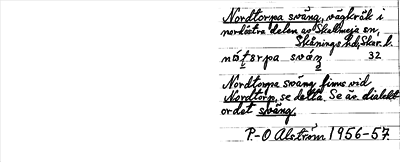 Nordtorpa sväng, vägkrök i
nordöstra delen av Skallmeja sn,
Skånings hd, Skar. l.
32
Nordtorpa sväng finns vid
Nordtorp, se detta. Se äv. dialekt
ordet sväng.
P.-O. Alström 1956-57.